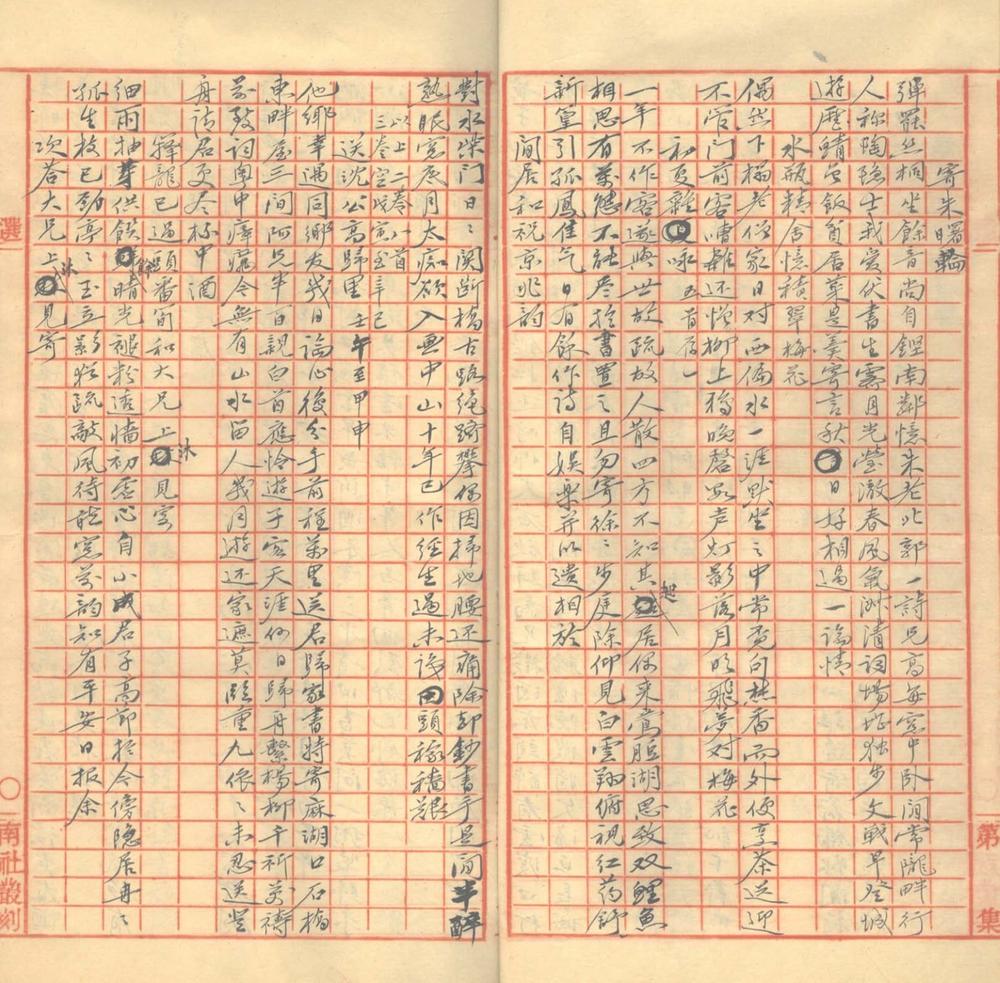 第 集
寄朱曙輪
彈罷絲桐坐餘音尚自鏗南鄰憶朱老北郭一詩兄高每窓中卧閒常隴畔行
人称陶隐士我爱伏書生霽月光瑩澈春風氣淑清詞場堪独步文戰早登城
遊歷蜻 飯貧居菜是羹寄言秋日好相過一論情
水瓶精居憶積翠梅花
偶然下榻老僧家日对西偏水一涯默坐之中常覔句焚香而外便烹茶送迎
不管门前客嘈雜还憎柳上鴉晚磬数声灯影落月明飛夢对梅花
初夏雜咏 五首存一
一年不作客遂與世故疏故人散四方不知其起居偶来鶯脰湖思致双鲤魚
相思有萬態不能尽於書置之且勿寄徐之步庭除仰見白雲翔俯視红药舒
新篁引孤鳳佳气日有餘作诗自娱樂并以遺相於
閒居和祝京兆韵
對水柴门日之関断橋古路绝躋攀偶因掃地腰还痛除却鈔書手是閒半醉
熟眠窓底月太痴欲入画中山十年已作经生過未識田頭稼穡艱
以上二卷八首
三卷空戊寅至辛巳
送沈公高歸里 壬午至甲申
他鄉幸遇同鄉友幾日論心後分手前程萬里送君歸家書特寄麻湖口石橋
東畔屋三间阿兄半百親白首應怜遊子客天涯何日歸舟繫楊柳千祈萬禱
前致词粤中瘴癘今無有山水留人我同遊还家遮莫臨重九依之未忍送登
舟请君更尽杯中酒
籜龍已過頭番旬和大兄上沐見寄
細雨抽芽供饌餘晴光褪粉透墙初虚心自小成居子高節拒今傍隐居冉之
孤生枝已劲亭之玉立影犹疏敲風待訪窓前韵知有平安日报余
次答大兄上沐見寄
選 南社叢刻